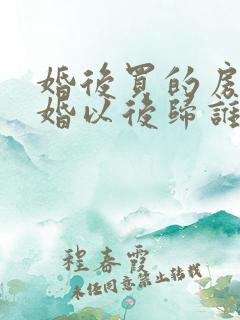 婚後買的房
婚以後歸誰
程春霞
未经同意禁止转载